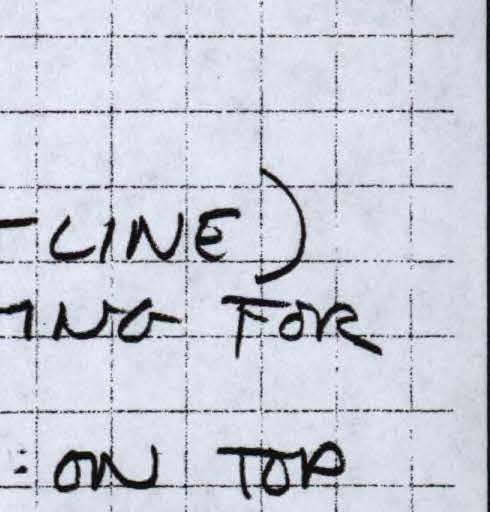 -LINE)
ING FOR
: ON TOP